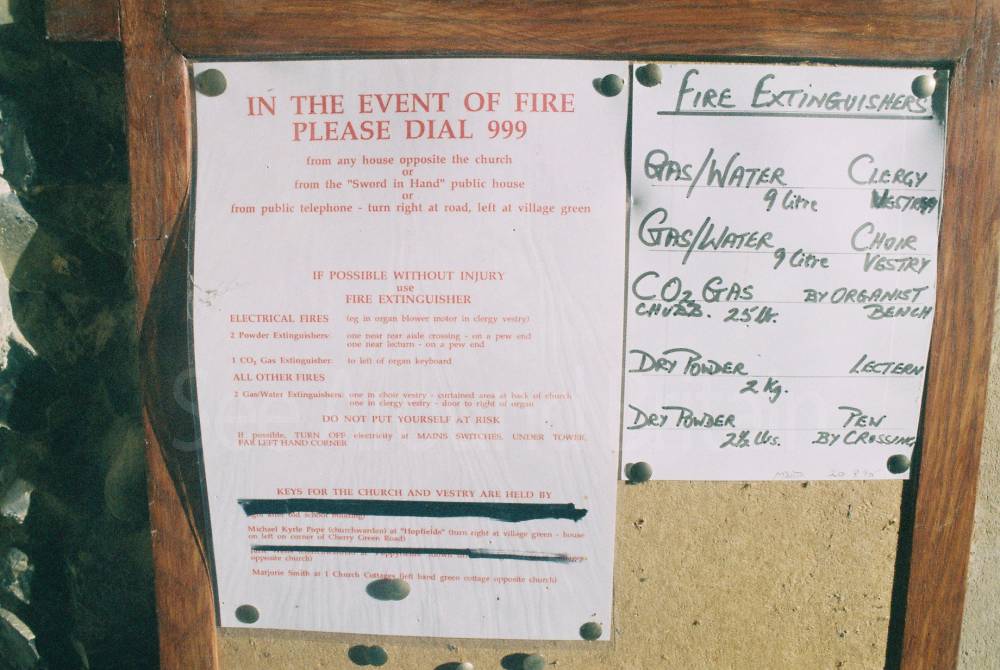 IN THE EVENT OF FIRE
PLEASE DIAL 999
from any house opposite the church
or
from the "Sword in Hand" public house
or
from public telephone - turn right at road, left at village green
IF POSSIBLE WITHOUT INJURY
use
FIRE EXTINGUISHER
ELECTRICAL FIRES (eg in organ blower motor in clergy vestry)
2 Powder Extinguishers: one near rear aisle crossing - on a pew end
one near lecturn - on a pew end
1 CO₂ Gas Extinguisher: to left of organ keyboard
ALL OTHER FIRES
2 Gas/Water Extinguishers: one in choir vestry - curtained area at back of church
one in clergy vestry - door to right of organ
DO NOT PUT YOURSELF AT RISK
If possible, TURN OFF electricity at MAINS SWITCHES, UNDER TOWER,
FAR LEFT HAND CORNER
KEYS FOR THE CHURCH AND VESTRY ARE HELD BY
Michael Kyrle Pope (churchwarden) at "Hopfields" (turn right at village green - house
on left on corner of Cherry Green Road)
opposite church)
Marjorie Smith at 1 Church Cottages (left hand green cottage opposite church)
FIRE EXTINGUISHERS
GAS/WATER CLERGY
9 Litre VESTRY
GAS/WATER CHOIR
9 Litre VESTRY
CO₂ GAS BY ORGANIST
CHUBB. 25 lb. BENCH
DRY POWDER LECTERN
2 Kg.
DRY POWDER PEW
2½ lbs. BY CROSSING